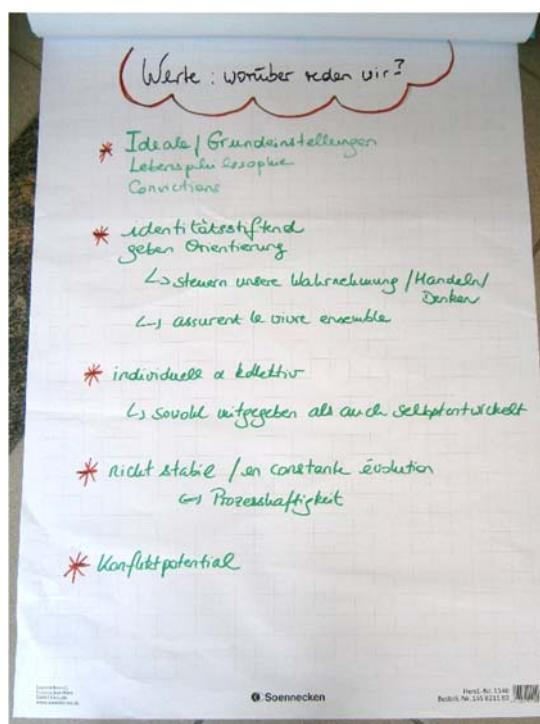 Werte : worüber reden wir?
* Ideale / Grundeinstellungen
Lebensphilosophie
Convictions
* identitätsstiftend
geben Orientierung
↳ steuern unsere Wahrnehmung / Handeln /
Denken
↳ assurent le vivre ensemble
* individuell & kollektiv
↳ sowohl mitgegeben als auch selbstentwickelt
* nicht stabil / en constante évolution
↳ Prozesshaftigkeit
* Konfliktpotential
Soennecken